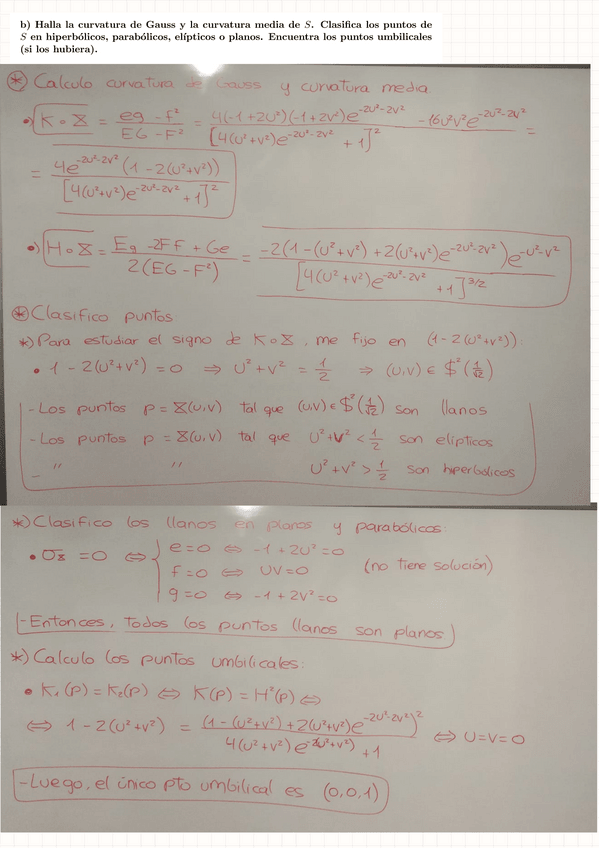 b) Halla la curvatura de Gauss y la curvatura media de S. Clasifica los puntos de
S en hiperbólicos, parabólicos, elípticos o planos. Encuentra los puntos umbilicales
(si los hubiera).
⊛ Calculo curvatura de Gauss y curvatura media
•) K∘X = (eg - f²)/(EG - F²) = (4(-1+2u²)(-1+2v²)e^(-2u²-2v²) - 16u²v²e^(-2u²-2v²))/[4(u²+v²)e^(-2u²-2v²) + 1]² =
= (4e^(-2u²-2v²) (1 - 2(u²+v²)))/[4(u²+v²)e^(-2u²-2v²) + 1]²
•) H∘X = (Eg - 2Ff + Ge)/(2(EG - F²)) = (-2(1 - (u²+v²) + 2(u²+v²)e^(-2u²-2v²))e^(-u²-v²))/[4(u²+v²)e^(-2u²-2v²) + 1]^(3/2)
⊛ Clasifico puntos
*) Para estudiar el signo de K∘X, me fijo en (1 - 2(u²+v²)):
• 1 - 2(u²+v²) = 0 ⇒ u²+v² = 1/2 ⇒ (u,v) ∈ $²(1/√2)
- Los puntos p = X(u,v) tal que (u,v) ∈ $²(1/√2) son llanos
- Los puntos p = X(u,v) tal que u²+v² < 1/2 son elípticos
- '' '' u²+v² > 1/2 son hiperbólicos
*) Clasifico los llanos en planos y parabólicos:
• σ_X = 0 ⇔ { e=0 ⇔ -1+2u²=0
f=0 ⇔ uv=0 (no tiene solución)
g=0 ⇔ -1+2v²=0
- Entonces, todos los puntos llanos son planos
*) Calculo los puntos umbilicales:
• K₁(p) = K₂(p) ⇔ K(p) = H²(p) ⇔
⇔ 1 - 2(u²+v²) = (1 - (u²+v²) + 2(u²+v²)e^(-2u²-2v²))²/(4(u²+v²)e^(-2(u²+v²)) + 1) ⇔ u=v=0
- Luego, el único pto umbilical es (0,0,1)